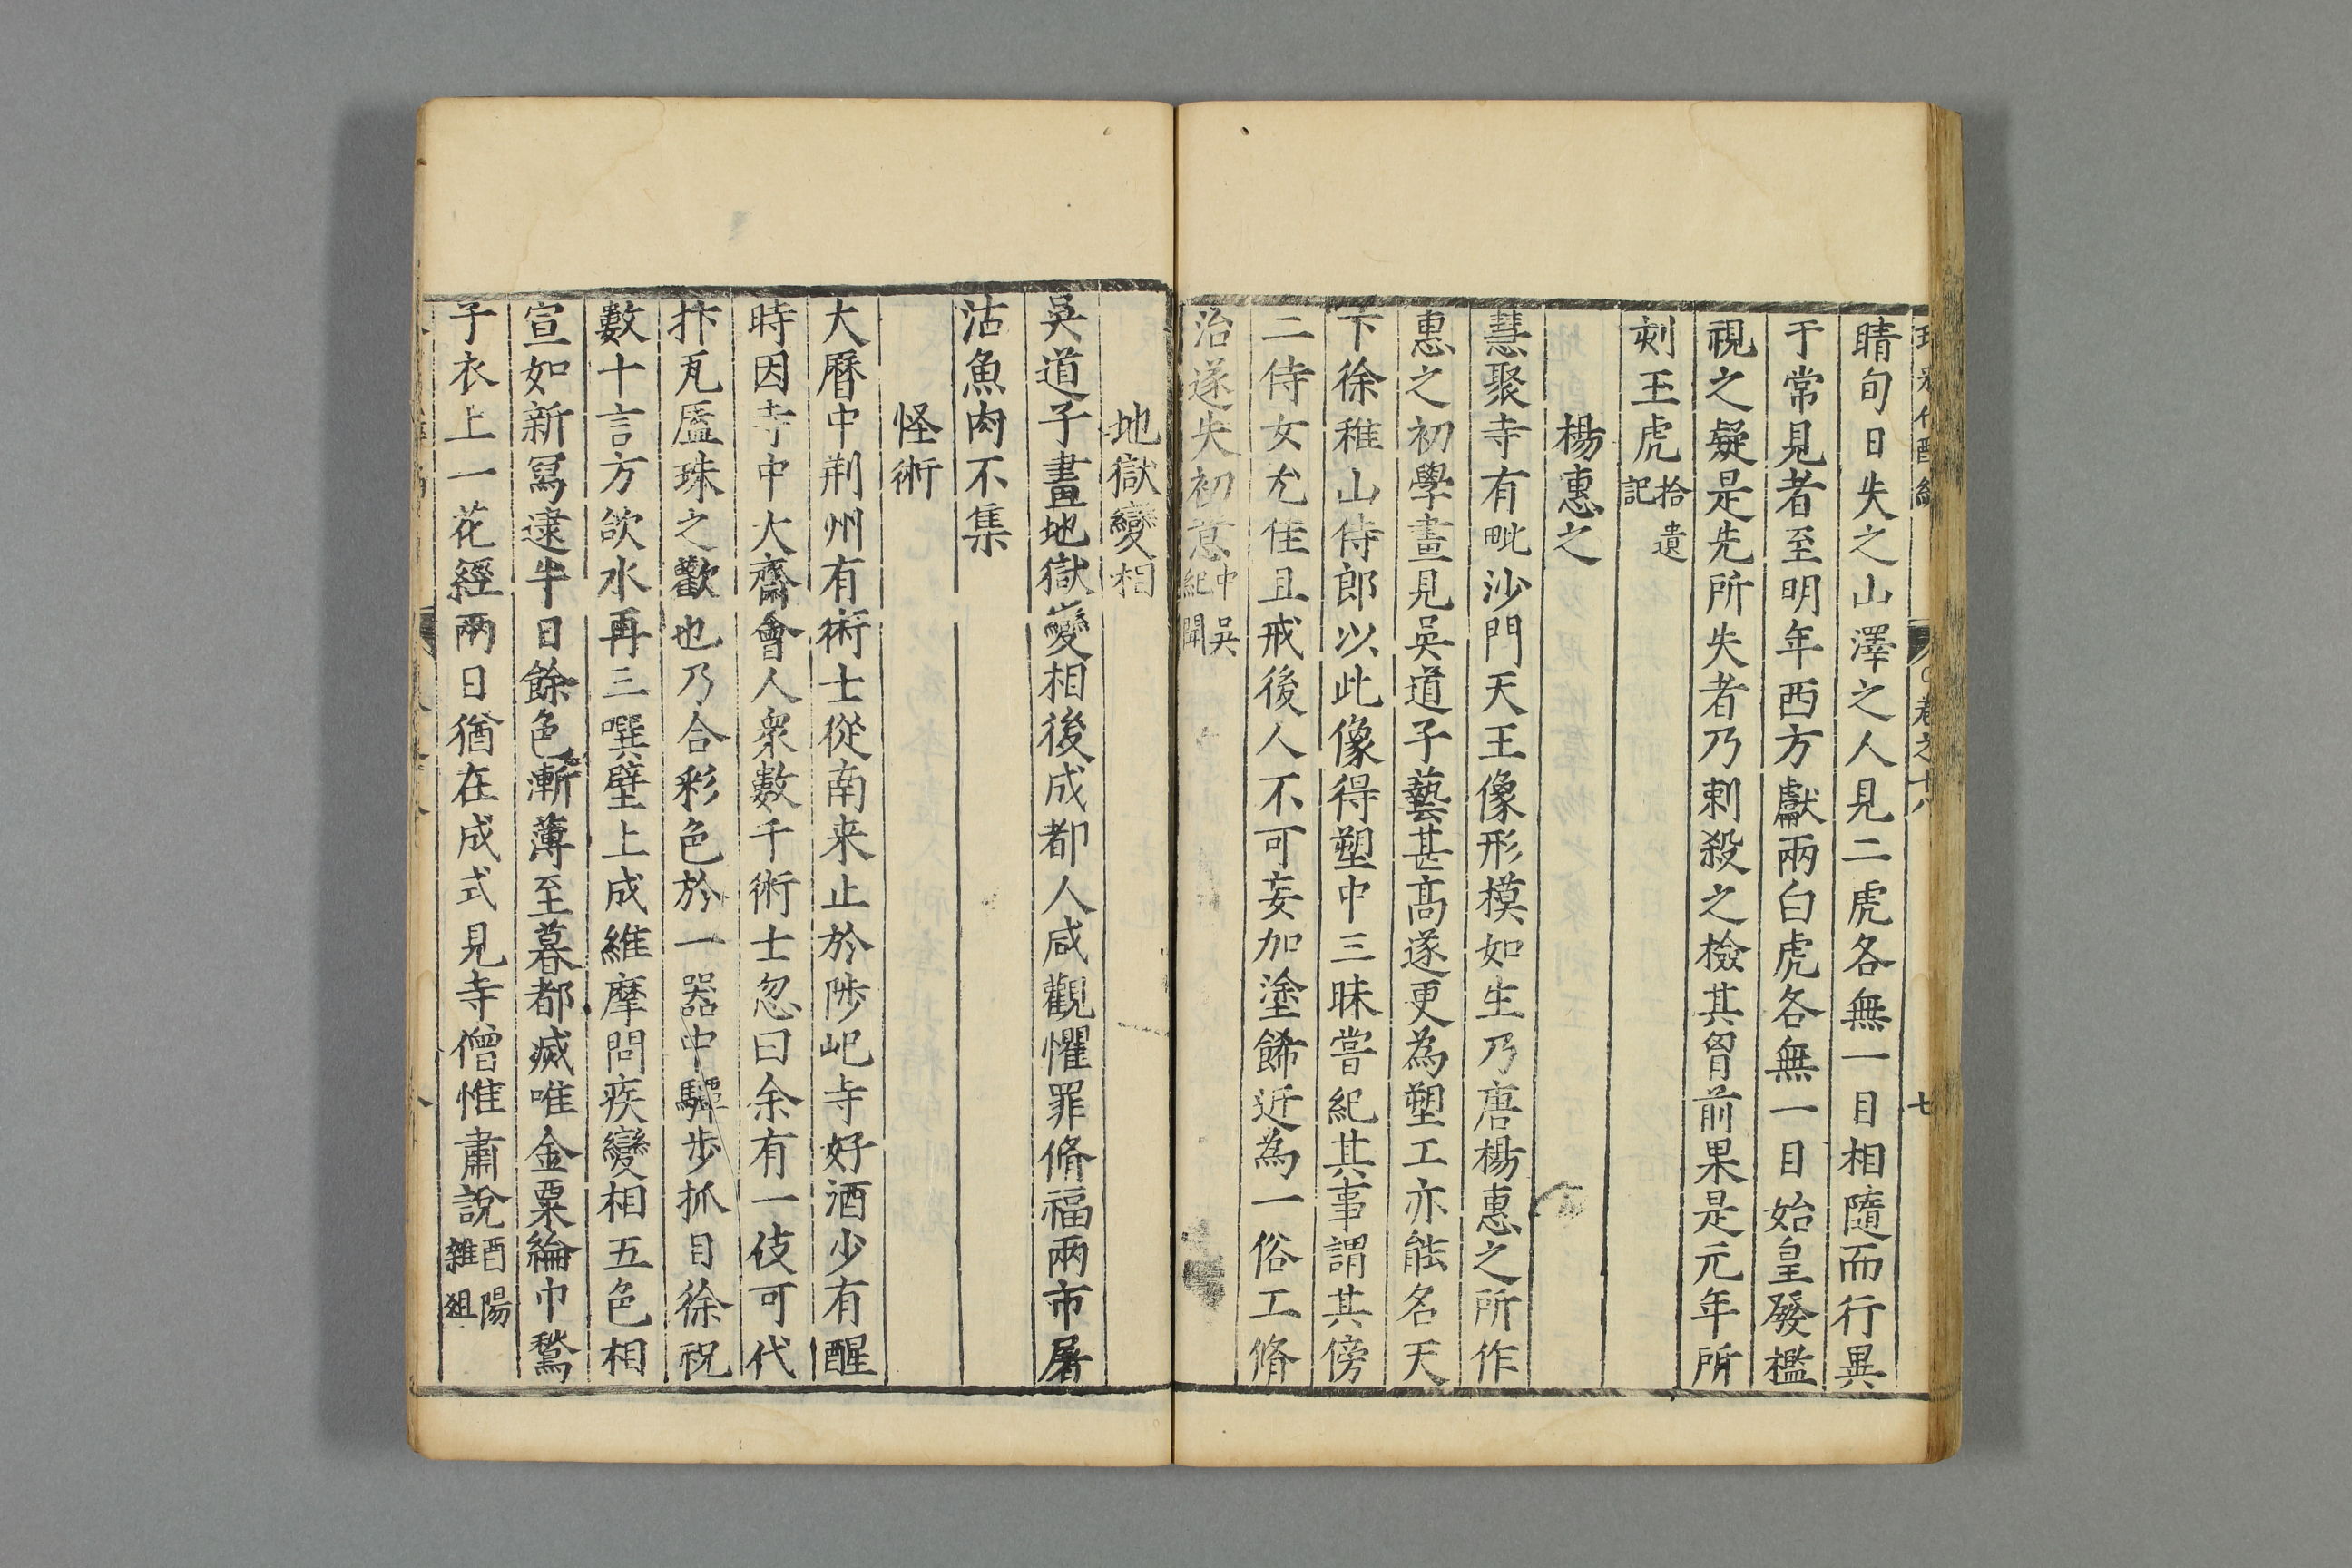 卷之十八
七
睛旬日失之山澤之人見二虎各無一目相隨而行異
于常見者至明年西方獻兩白虎各無一目始皇發檻
視之疑是先所失者乃刺殺之檢其胷前果是元年所
刻玉虎拾遺記
楊惠之
慧聚寺有毗沙門天王像形模如生乃唐楊惠之所作
惠之初學畫見吳道子藝甚高遂更為塑工亦能名天
下徐稚山侍郎以此像得塑中三昧嘗紀其事謂其傍
二侍女尤佳且戒後人不可妄加塗餙近為一俗工脩
治遂失初意中吳紀聞
地獄變相
吳道子畫地獄變相後成都人咸觀懼罪脩福兩市屠
沽魚肉不集
怪術
大曆中荆州有術士從南来止於陟屺寺好酒少有醒
時因寺中大齋會人衆數千術士忽曰余有一伎可代
抃瓦𢋫珠之歡也乃合彩色於一器中驟步抓目徐祝
數十言方欱水再三噀壁上成維摩問疾變相五色相
宣如新冩逮半日餘色漸薄至暮都滅唯金粟綸巾鶖
子衣上一花經兩日猶在成式見寺僧惟肅說酉陽雜俎